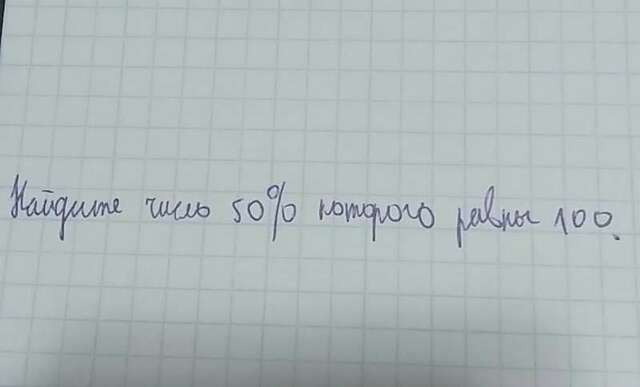 Найдите число 50% которого равны 100.